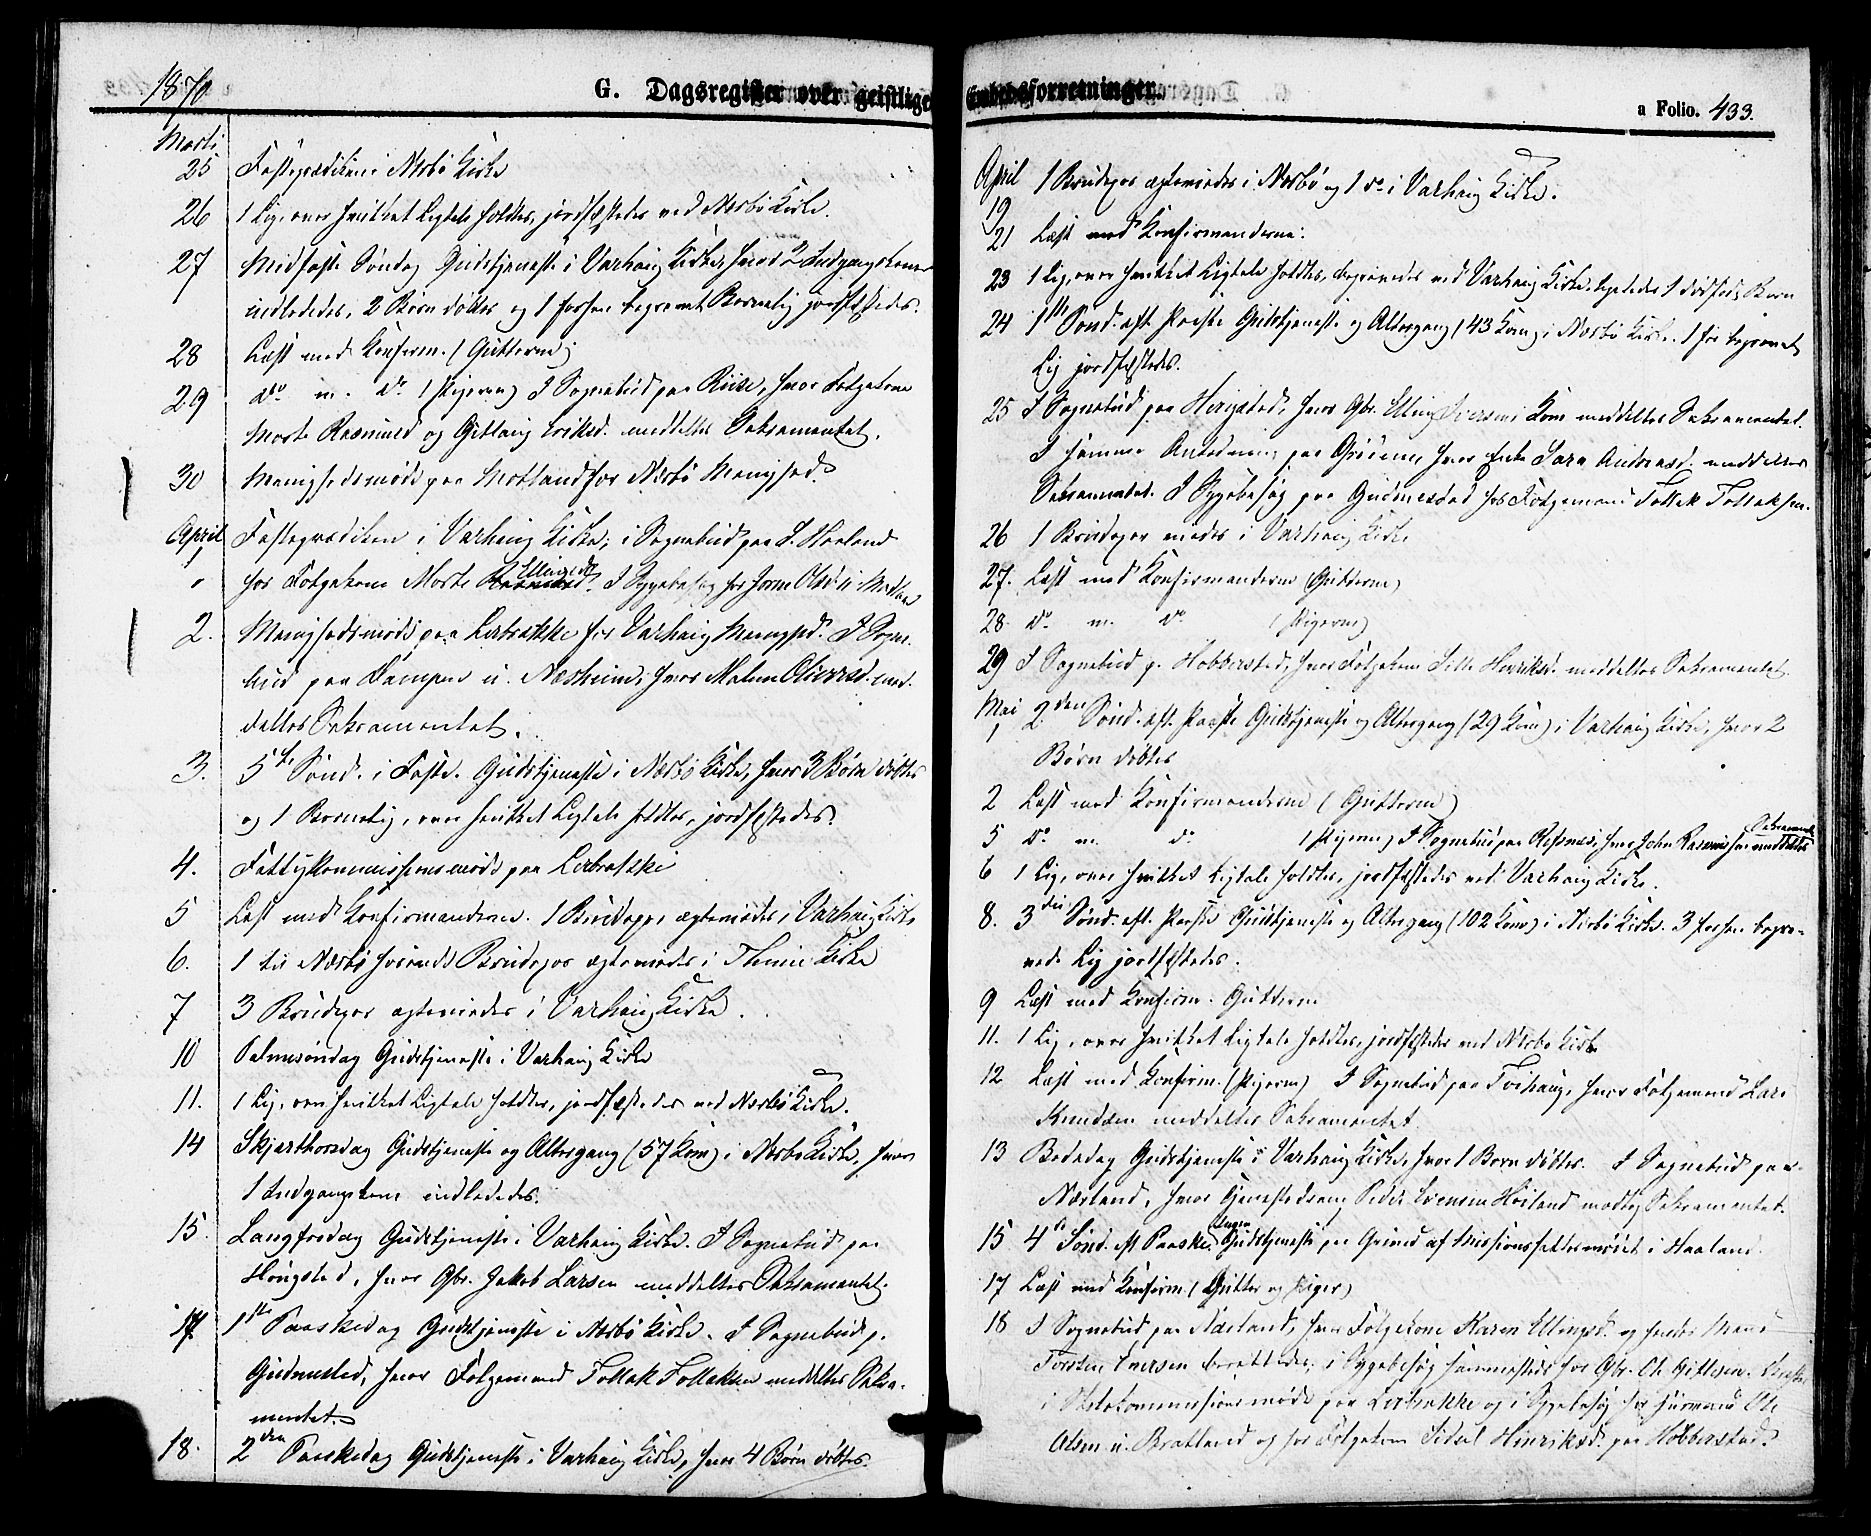 1870
G. Dagsregister over geistlige Embedsforretninger.
a Folio. 433.
Marts
25 Fasteprædiken i Nærbø Kirke
26 1 Lig, over hvilket Ligtale holdtes, jordfæstedes ved Nærbø Kirke.
27 Midfaste Søndag Gudstjeneste i Varhaug Kirke, hvor 2 Indgangskoner
indlededes, 2 Børn døbtes og 1 forhen begravet Barnelig jordfæstedes.
28 Læst med Konfirm. (Gutterne)
29 do m. do (Pigerne) I Sognebud paa Riise, hvor Følgekone
Marte Rasmusd og Gitlaug Eriksd. meddeltes Sakramentet.
30 Menighedsmøde paa Motland for Nærbø Menighed.
April
1 Fasteprædiken i Varhaug Kirke; i Sognebud paa S. Haaland
hos Følgekone Marte Ellingsd. I Sygebesøg hos Olsd
2. Menighedsmøde paa Lerbrække for Varhaug Menighd. I Sogne-
bud paa u. Næsheim, hvor Malene Oliversd. med-
deltes Sakramentet.
3. 5te Sønd. i Faste. Gudstjeneste i Nærbø Kirke, hvor 3 Børn døbtes
og 1 Barnelig, over hvilket Ligtale holdtes, jordfæstedes.
4. Fattigkommissionsmøde paa Lerbrække
5 Læst med Konfirmanderne. 1 Brudepar ægteviedes i Varhaug Kirke
6. 1 til Nærbø hørende Brudepar ægteviedes i Thime Kirke
7 3 Brudepar ægteviedes i Varhaug Kirke.
10 Palmesøndag Gudstjeneste i Varhaug Kirke
11. 1 Lig, over hvilket Ligtale holdtes, jordfæstedes ved Nærbø Kirke.
14 Skjærthorsdag Gudstjeneste og Altergang (57 Kom) i Nærbø Kirke, hvor
1 Indgangskone indlededes.
15. Langfredag Gudstjeneste i Varhaug Kirke. I Sognebud paa
Høugstad, hvor Gbr. Jakob Larsen meddeltes Sakramentet.
17 1ste Paaskedag Gudstjeneste i Nærbø Kirke. I Sognebud p.
Gudmestad, hvor Følgemand Tollak Tollaksen meddeltes Sakra-
mentet.
18. 2den Paaskedag Gudstjeneste i Varhaug Kirke, hvor 4 Børn døbtes.
April
19 1 Brudepar ægteviedes i Nærbø og 1 do i Varhaug Kirke.
21 Læst med Konfirmanderne.
23 1 Lig, over hvilket Ligtale holdtes, begravedes ved Varhaug Kirke, ligeledes 1 dødfødt Barn
24 1ste Sønd. eft. Paaske Gudstjeneste og Altergang (43 Kom) i Nærbø Kirke. 1 før begravet
Lig jordfæstedes.
25 I Sognebud paa Herigstad, hvor Gbr. Elling Iversens Kone meddeltes Sakramentet.
I samme Anledning paa hvor Enke Sara Andersd. meddeltes
Sakramentet. I Sygebesøg paa Gudmestad hos Følgemand Tollak Tollaksen.
26 1 Brudepar viedes i Varhaug Kirke
27. Læst med Konfirmanderne (Gutterne)
28. do m. do (Pigerne)
29 I Sognebud p. Hobberstad, hvor Følgekone Sille Henriksd. meddeltes Sakramentet.
Mai
1 2den Sønd. eft. Paaske Gudstjeneste og Altergang (29 Kom) i Varhaug Kirke, hvor 2
Børn døbtes
2 Læst med Konfirmanderne (Gutterne)
5 do m. do (Pigerne) I Sognebud paa Refsnes, hvor John Rasmussen meddeltes Sakramentet
6 1 Lig, over hvilket Ligtale holdtes, jordfæstedes ved Varhaug Kirke.
8. 3die Sønd. eft. Paaske Gudstjeneste og Altergang (102 Kom) i Nærbø Kirke. 3 forhen begra-
vede Lig jordfæstedes.
9 Læst med Konfirm. Gutterne
11. 1 Lig, over hvilket Ligtale holdtes, jordfæstedes ved Nærbø Kirke
12 Læst med Konfirm. (Pigerne) I Sognebud paa Tvihaug, hvor Følgemand Lars
Knudsen meddeltes Sakramentet.
13 Bededag Gudstjeneste i Varhaug Kirke, hvor 1 Barn døbtes. I Sognebud paa
Nærland, hvor Tjenestedreng Peder Svensen Høiland modtog Sakramentet.
15 4de Sønd. eft. Paaske. Ingen Gudstjeneste paa Grund af Missionsfællesmødet i Haaland.
17 Læst med Konfirm. (Gutter og Piger)
18 I Sognebud paa Nærland, hvor Følgekone Karen Ellingsd. og hendes Mand
Torsten Iversen berettedes; i Sygebesøg sammesteds hos Gbr. Ole Gitlesen.
i Skolekommissionsmøde paa Lerbrække og i Sygebesøg hos Huusmand Ole
Olsen u. Bratland og hos Følgekone Sidsel Henriksd. paa Hobberstad.